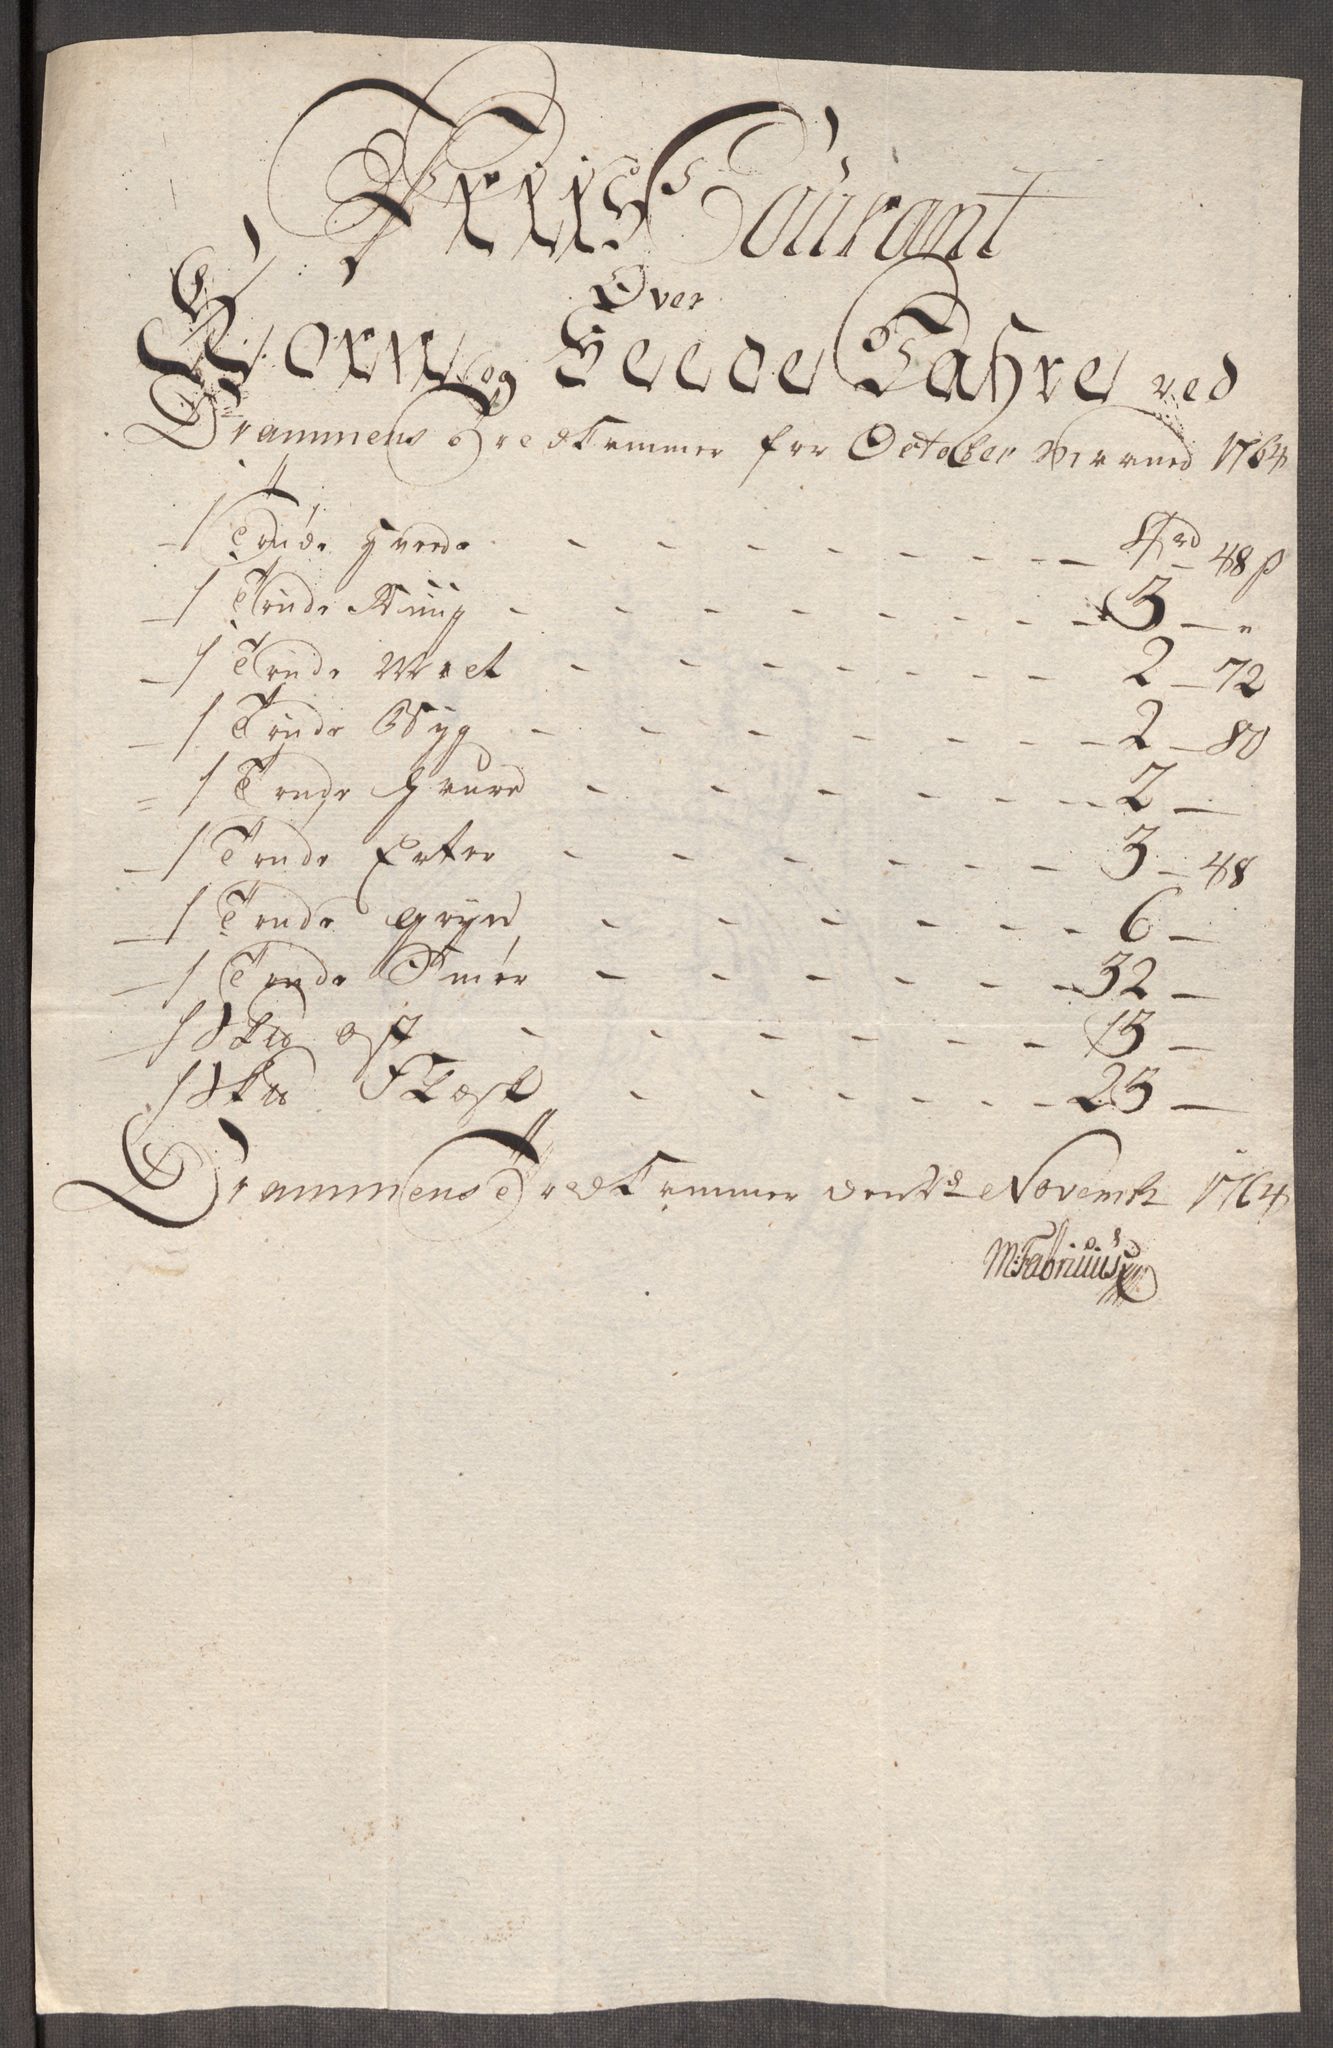 Priis Courant
Over
Korn og Feede Vahre ved
Drammens Tredkammer for October Maaned 1764
1 Tønde Hvede - - - - - - 4 rd 48 ß
1 Tønde Rüüg - - - - - - 3 — "
1 Tønde Malt - - - - - - 2 — 72
1 Tønde Byg - - - - - - 2 — 80
1 Tønde Haure - - - - - - 2 —
1 Tønde Erter - - - - - - 3 — 48
1 Tønde Gryn - - - - - - 6 —
1 Tønde Smør - - - - - - 32 —
1 Sk℔ ost - - - - - - 15 —
1 Sk℔ Flæsk - - - - - - 25 —
Drammens Tredkammer den Novemb 1764
M: Fabritius